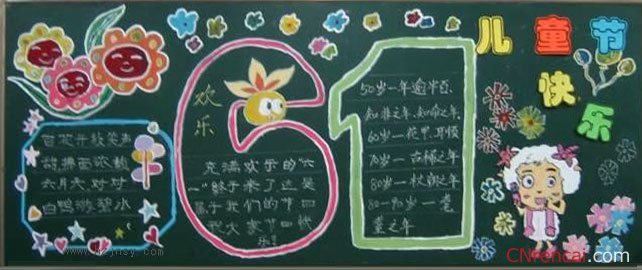 61
儿童节
快乐
百花开放笑声
甜拂面浓艳
六月天对对
白鹅微碧水
欢乐
充满欢乐的“六
一”终于来了这是
属于我们的节日
祝大家节日快
乐!
50岁—年逾半百、
知非之年、知命之年
60岁—花甲、耳顺
70岁—古稀之年
80岁—杖朝之年
80—90岁—耄
耋之年
CNrencai.com